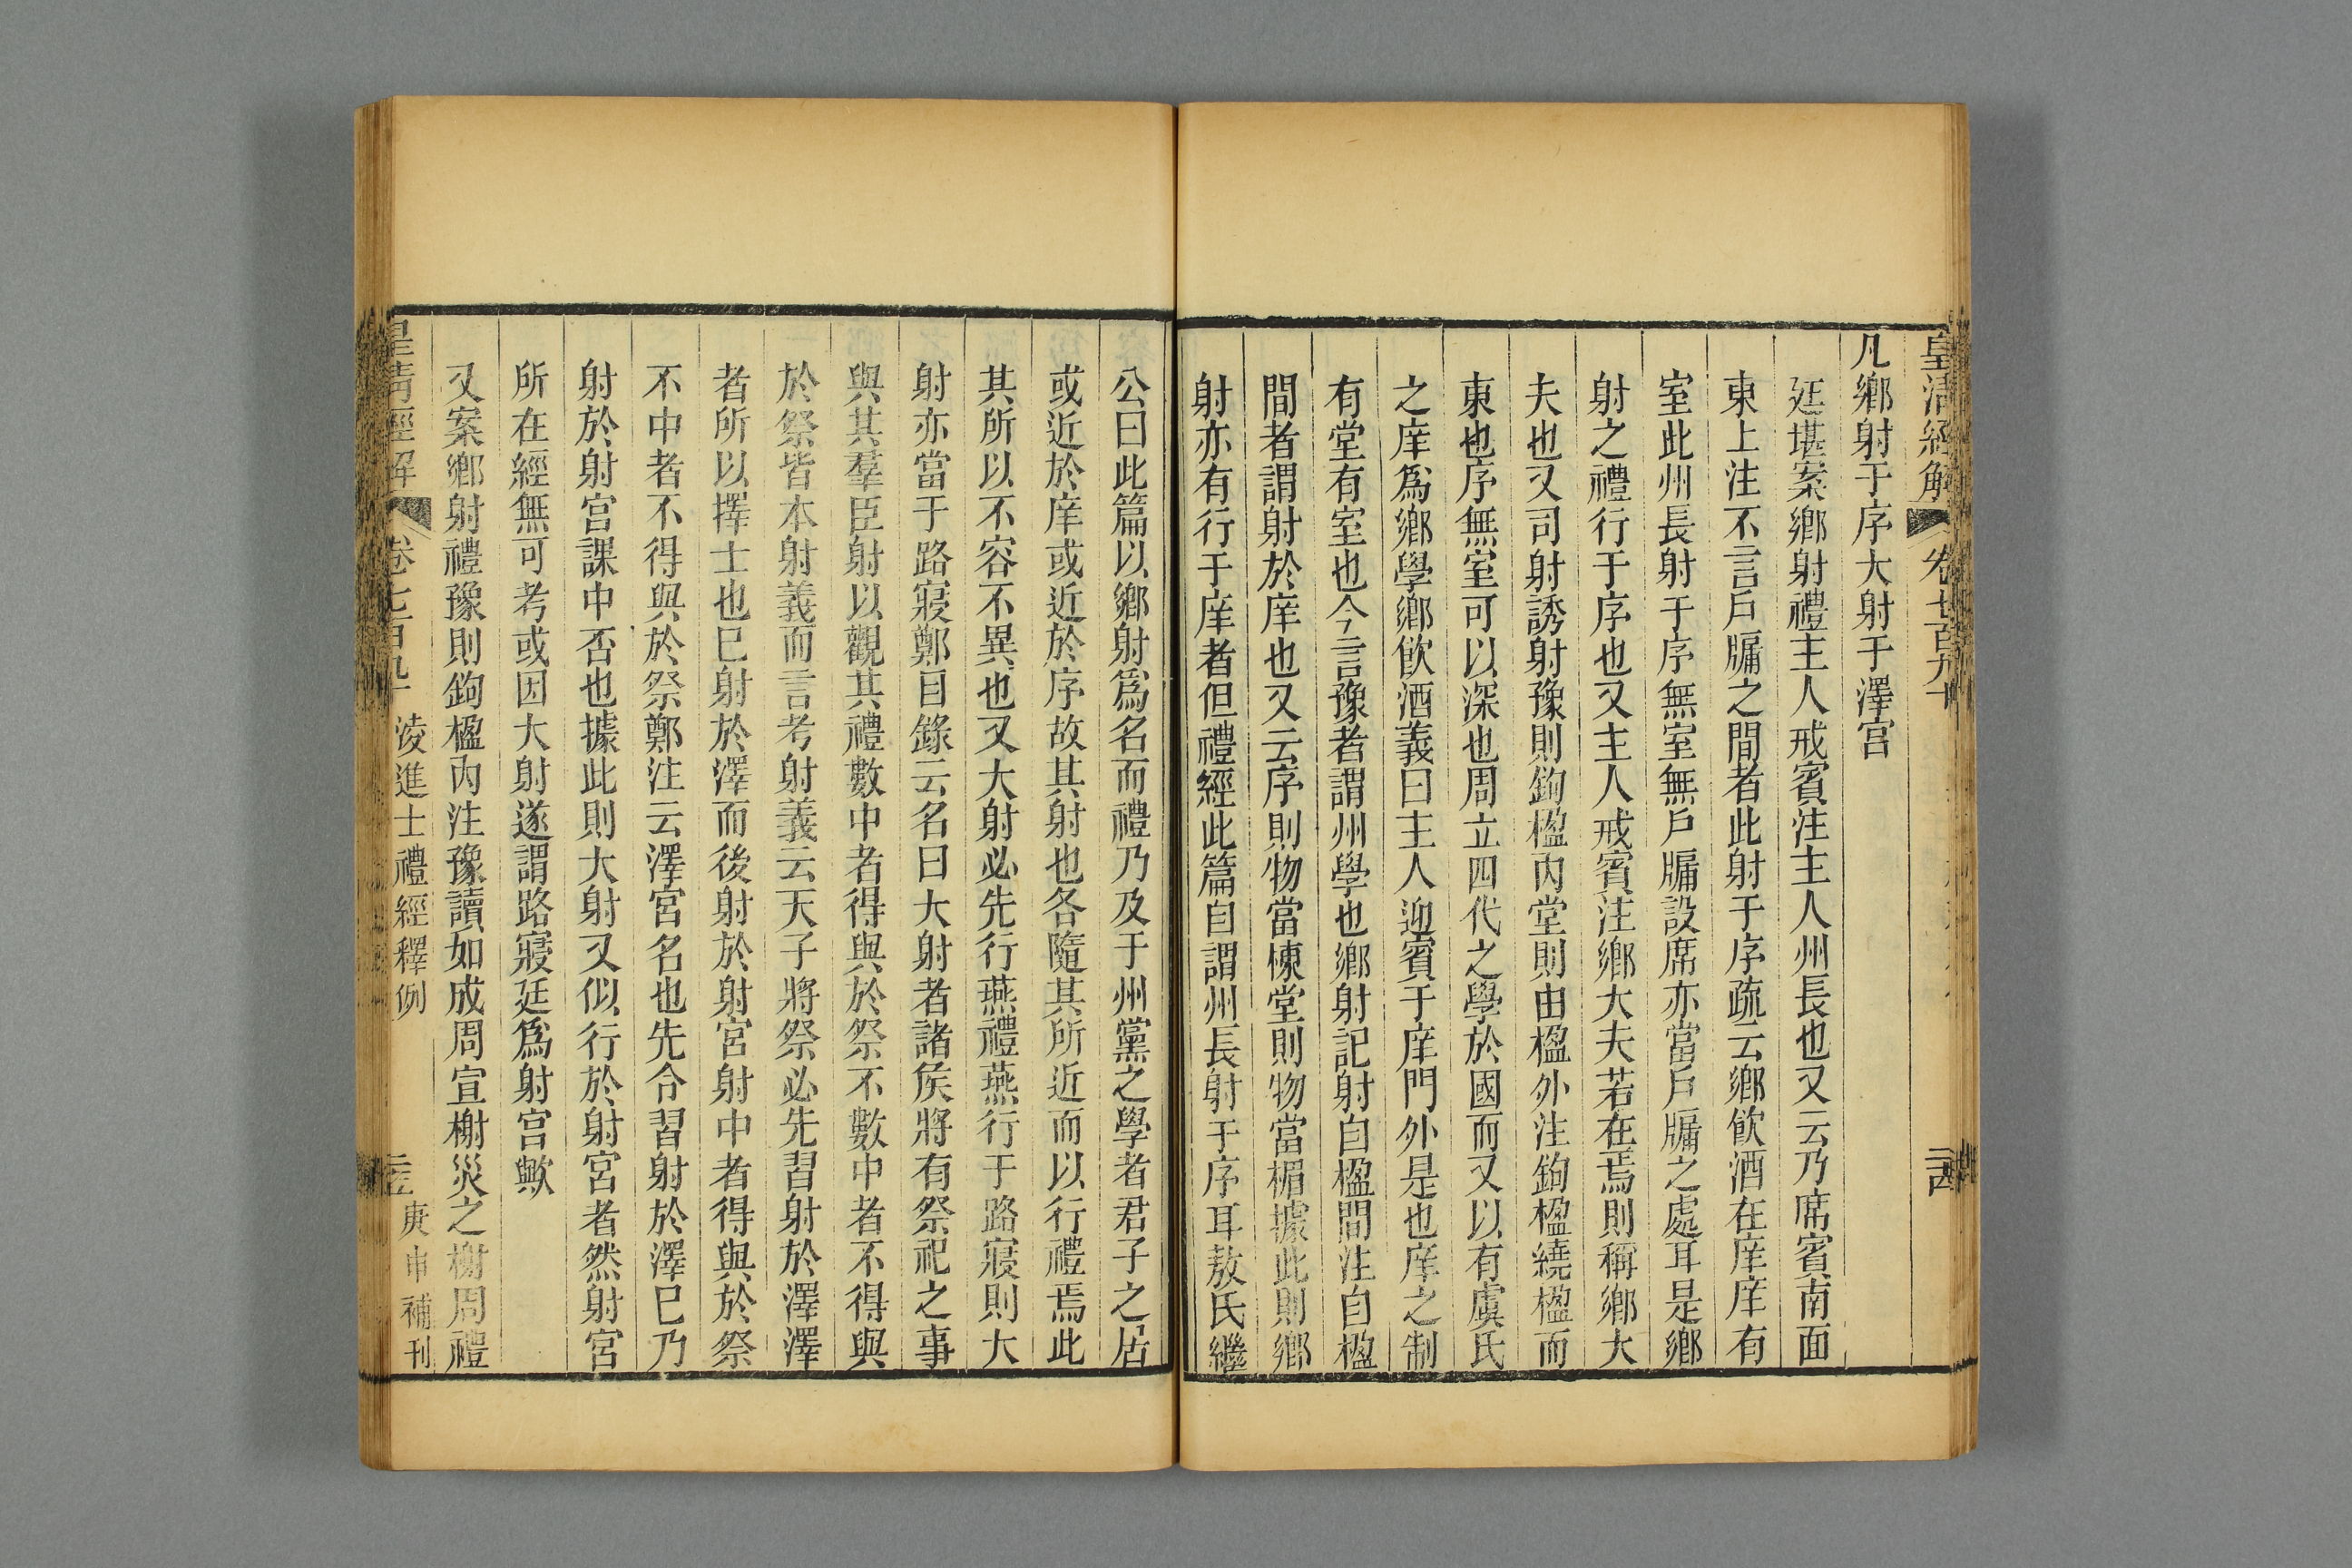 皇清經解
卷七百九十
凡鄉射于序大射于澤宮
廷堪案鄉射禮主人戒賓注主人州長也又云乃席賓南面
東上注不言戶牖之間者此射于序疏云鄉飲酒在庠庠有
室此州長射于序無室無戶牖設席亦當戶牖之處耳是鄉
射之禮行于序也又主人戒賓注鄉大夫若在焉則稱鄉大
夫也又司射誘射豫則鉤楹內堂則由楹外注鉤楹繞楹而
東也序無室可以深也周立四代之學於國而又以有虞氏
之庠爲鄉學鄉飲酒義曰主人迎賓于庠門外是也庠之制
有堂有室也今言豫者謂州學也鄉射記射自楹間注自楹
間者謂射於庠也又云序則物當棟堂則物當楣據此則鄉
射亦有行于庠者但禮經此篇自謂州長射于序耳敖氏繼
公曰此篇以鄉射爲名而禮乃及于州黨之學者君子之居
或近於庠或近於序故其射也各隨其所近而以行禮焉此
其所以不容不異也又大射必先行燕禮燕行于路寢則大
射亦當于路寢鄭目錄云名曰大射者諸侯將有祭祀之事
與其羣臣射以觀其禮數中者得與於祭不數中者不得與
於祭皆本射義而言考射義云天子將祭必先習射於澤澤
者所以擇士也已射於澤而後射於射宮射中者得與於祭
不中者不得與於祭鄭注云澤宮名也先令習射於澤已乃
射於射宮課中否也據此則大射又似行於射宮者然射宮
所在經無可考或因大射遂謂路寢廷爲射宮歟
又案鄉射禮豫則鉤楹內注豫讀如成周宣榭災之榭周禮
皇清經解
卷七百九十
淩進士禮經釋例
庚申補刊